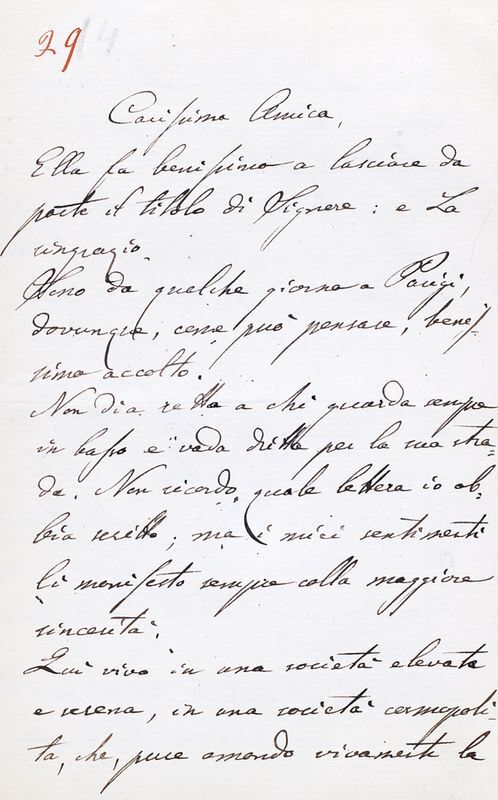 29 14
Carissima Amica,
Ella fa benissimo a lasciare da
parte il titolo di Signore: e La
ringrazio.
Sono da qualche giorno a Parigi,
dovunque, come può pensare, benis-
simo accolto.
Non dia retta a chi guarda sempre
in basso e vada dritta per la sua stra-
da. Non ricordo quale lettera io ab-
bia scritto; ma i miei sentimenti
li manifesto sempre colla maggiore
sincerità.
Qui vivo in una società elevata
e serena, in una società cosmopoli-
ta, che, pure amando vivamente la